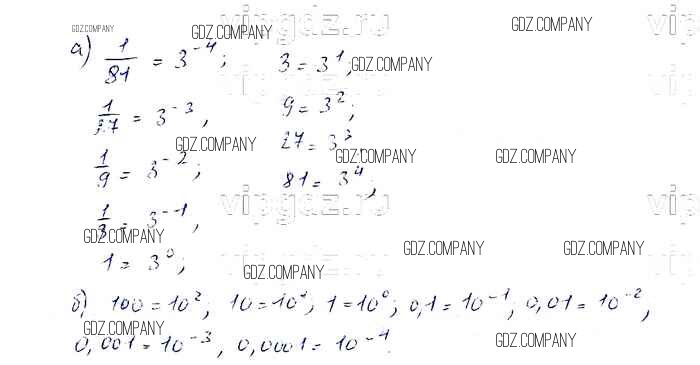 а) 1/81 = 3^-4; 3 = 3^1;
1/27 = 3^-3, 9 = 3^2;
1/9 = 3^-2; 27 = 3^3
1/3 = 3^-1, 81 = 3^4;
1 = 3^0;
б) 100 = 10^2; 10 = 10^1; 1 = 10^0; 0,1 = 10^-1, 0,01 = 10^-2,
0,001 = 10^-3, 0,0001 = 10^-4
GDZ.COMPANY
GDZ.COMPANY
GDZ.COMPANY
GDZ.COMPANY
GDZ.COMPANY
GDZ.COMPANY
GDZ.COMPANY
GDZ.COMPANY
GDZ.COMPANY
GDZ.COMPANY
GDZ.COMPANY
GDZ.COMPANY
GDZ.COMPANY
vipgdz.ru
vipgdz.ru